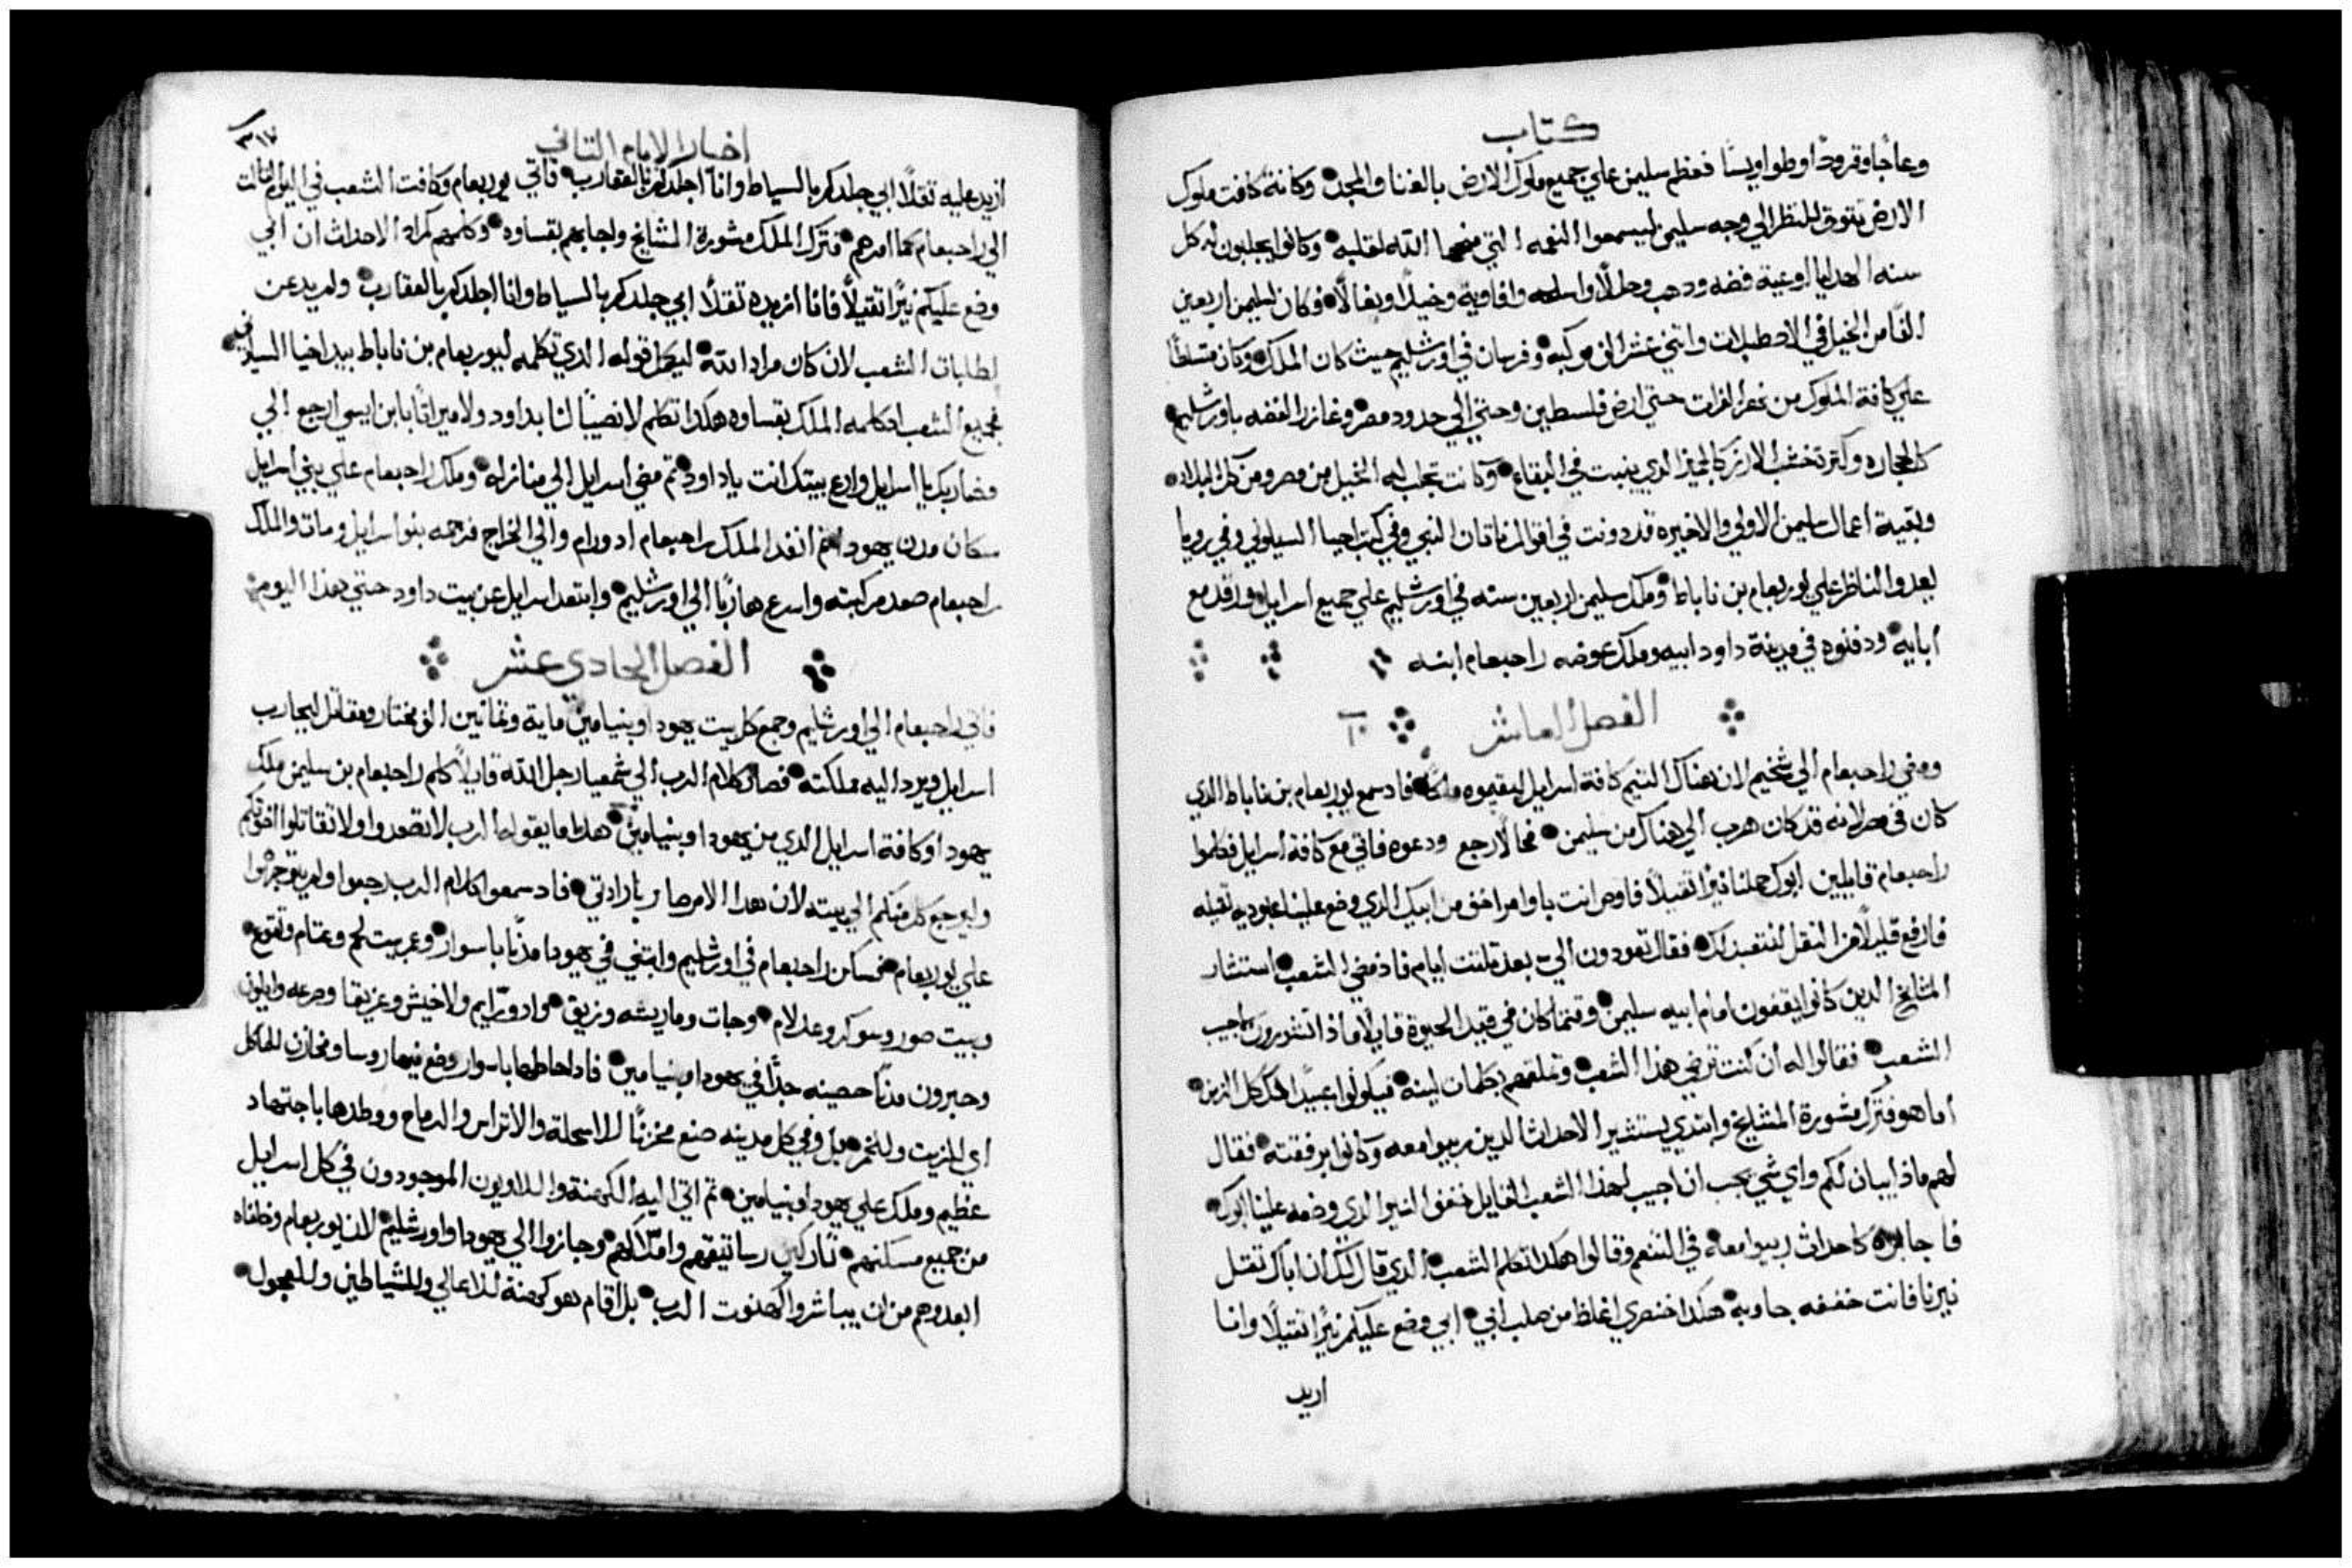 كتاب
وعاجا وقرودا وطواويسا فعظم سليمن علي جميع ملوك الارض بالغنا والمجد وكانة كافت ملوك
الارض تتوق للنظر الي وجه سليمن ليسمعوا النعمه التي منحها الله لقلبه وكانوا يجلبون له كل
سنه الهدايا اوعية فضه ودهب وحللا واسلحه وافاوية وخيلا وبغالا وكان لسليمن اربعين
الفا من الخيل في الاصطبلات واتني عشر الف مركبه وفرسان في اورشليم حيث كان الملك وكان متسلطا
علي كافة الملوك من نهر الفرات حتي ارض فلسطين وحتي الي حدود مصر وغازر الفضه باورشليم
كالحجاره وكتر تخشب الارز كالجميز الدي ينبت في البقاع وكانت تجلب له الخيل من مصر ومن كل البلاد
وبقية اعمال سليمن الاولي والاخيره قد دونت في اقوال ناتان النبي وفي كتب احيا السيلوني وفي رويا
يعدوا الناظر علي يوربعام بن ناباط وملك سليمن اربعين سنه في اورشليم علي جميع اسرايل ورقد مع
ابايه ودفنوه في مدينة داود ابيه وملك عوضه راحبعام ابنه
الفصل العاشر
ومضي راحبعام الي شخيم لان هناك التيم كافة اسرايل ليقيموه ملكا فاد سمع يوربعام بن ناباط الدي
كان في مصر لانه قد كان هرب الي هناك من سليمن فحالا رجع ودعوه فاتي مع كافة اسرايل فكلموا
راحبعام قايلين ابوك حملنا نيرا تقيلا فاوص انت باوامر اخف من ابيك الدي وضع علينا عبوديه تقيله
فارفع قليلا من التقل لنتعبد لك فقال تعودون الي بعد تلتت ايام فاذ مضي الشعب استشار
المشايخ الدين كانوا يقفون امام ابيه سليمن وقتما كان في قيد الحيوة قايلا ماذا تشورون لاجيب
الشعب فقالوا له ان كنت ترضي هذا الشعب وتملقهم بكلمات لينه فيكونوا عبيدا لك كل الزمن
اما هو فترك مشورة المشايخ وابتدي يستشير الاحداث الدين ربيوا معه وكانوا برفقته فقال
لهم ماذا يبان لكم واي شي يجب ان اجيب لهذا الشعب القايل خفف النير الدي وضعه علينا ابوك
فاجابوه كاحداث ربيوا معه في التنعم وقالوا هكدا تكلم الشعب الدي قال لك ان اباك تقل
نيرنا فانت خففه جاوبه هكدا خنصري اغلظ من صلب ابي ابي وضع عليكم نيرا تقيلا وانا
اريد
اخبار الايام التاني
٣١٧
ازيد عليه تقلا ابي جلدكم بالسياط وانا اجلدكم بالعقارب فاتي يوربعام وكافت الشعب في اليوم التالت
الي راحبعام كما امرهم فترك الملك مشورة المشايخ واجابهم بقساوه وكلمهم كمراد الاحداث ان ابي
وضع عليكم نيرا تقيلا فانا ازيده تقلا ابي جلدكم بالسياط وانا اجلدكم بالعقارب ولم يدعن
لطلبات الشعب لان كان مراد الله ليكمل قوله الدي تكلمه ليوربعام بن ناباط بيد اخيا السيلوني
فجميع الشعب اد كلمه الملك بقساوه هكدا تكلم لا نصيبا لنا بداود ولا ميراتا بابن ايسي ارجع الي
مضاربك يا اسرايل وارع بيتك انت ياداود تم مضي اسرايل الي منازله وملك راحبعام علي بني اسرايل
سكان مدن يهودا تم انفد الملك راحبعام ادورام والي الخراج فرجمه بنو اسرايل ومات والملك
راحبعام صعد مركبته واسرع هاربا الي اورشليم وابتعد اسرايل عن بيت داود حتي هذا اليوم
الفصل الحادي عشر
فاتي راحبعام الي اورشليم وجمع كل بيت يهودا وبنيامين ماية وتمانين الف مختار ومقاتل ليحارب
اسرايل ويرد اليه مملكته فصار كلام الرب الي شمعيا رجل الله قايلا كلم راحبعام بن سليمن ملك
يهودا وكافة اسرايل الدي من يهودا وبنيامين هدا ما يقوله الرب لا تصعدوا ولا تقاتلوا اخوتكم
وليرجع كل منكم الي بيته لان هدا الامر صار بارادتي فاد سمعوا كلام الرب رجعوا ولم يتوجهوا
علي يوربعام فسكن راحبعام في اورشليم وابتني في يهودا مدنا باسوار وعمر بيت لحم وعتام وتقوع
وبيت صور وسوكو وعدلام وجات وماريشه وزيف وادورايم ولاخيش وعزيقا وصرعه وايلون
وحبرون مدنا حصينه جدا في يهودا وبنيامين فاد احاطها باسوار وضع فيها روسا ومخازن للماكل
اي للزيت وللخمر بل وفي كل مدينه صنع مخزنا للاسلحة والاتراس والرماح ووطدها باجتهاد
عظيم وملك علي يهودا وبنيامين تم اتي اليه الكهنة واللاويون الموجودون في كل اسرايل
من جميع مسكنهم تاركين رساتيقهم واملاكهم وجازوا الي يهودا واورشليم لان يوربعام وخلفاه
ابعدوهم من ان يباشروا كهنوت الرب بل اقام هو كهنة للاعالي وللشياطين وللعجول